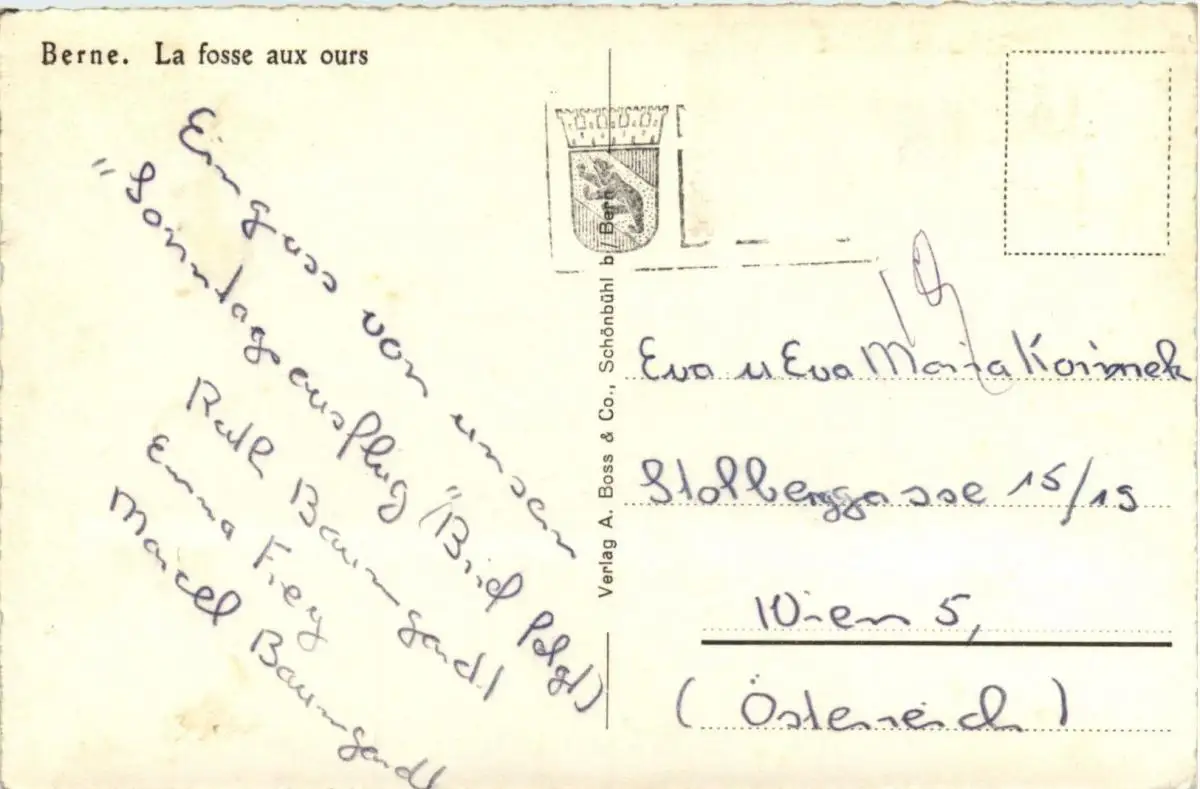 Berne. La fosse aux ours
Ein guss von unsen
"Sonntagsausflug" (Brief folgt)
Ruth Baumgandt
Emma Frey
Marcel Baumgandt
Verlag A. Boss & Co., Schönbühl b/Bern
Eva u Eva Maria
Stolberggasse 15/19
Wien 5,
(Österreich)